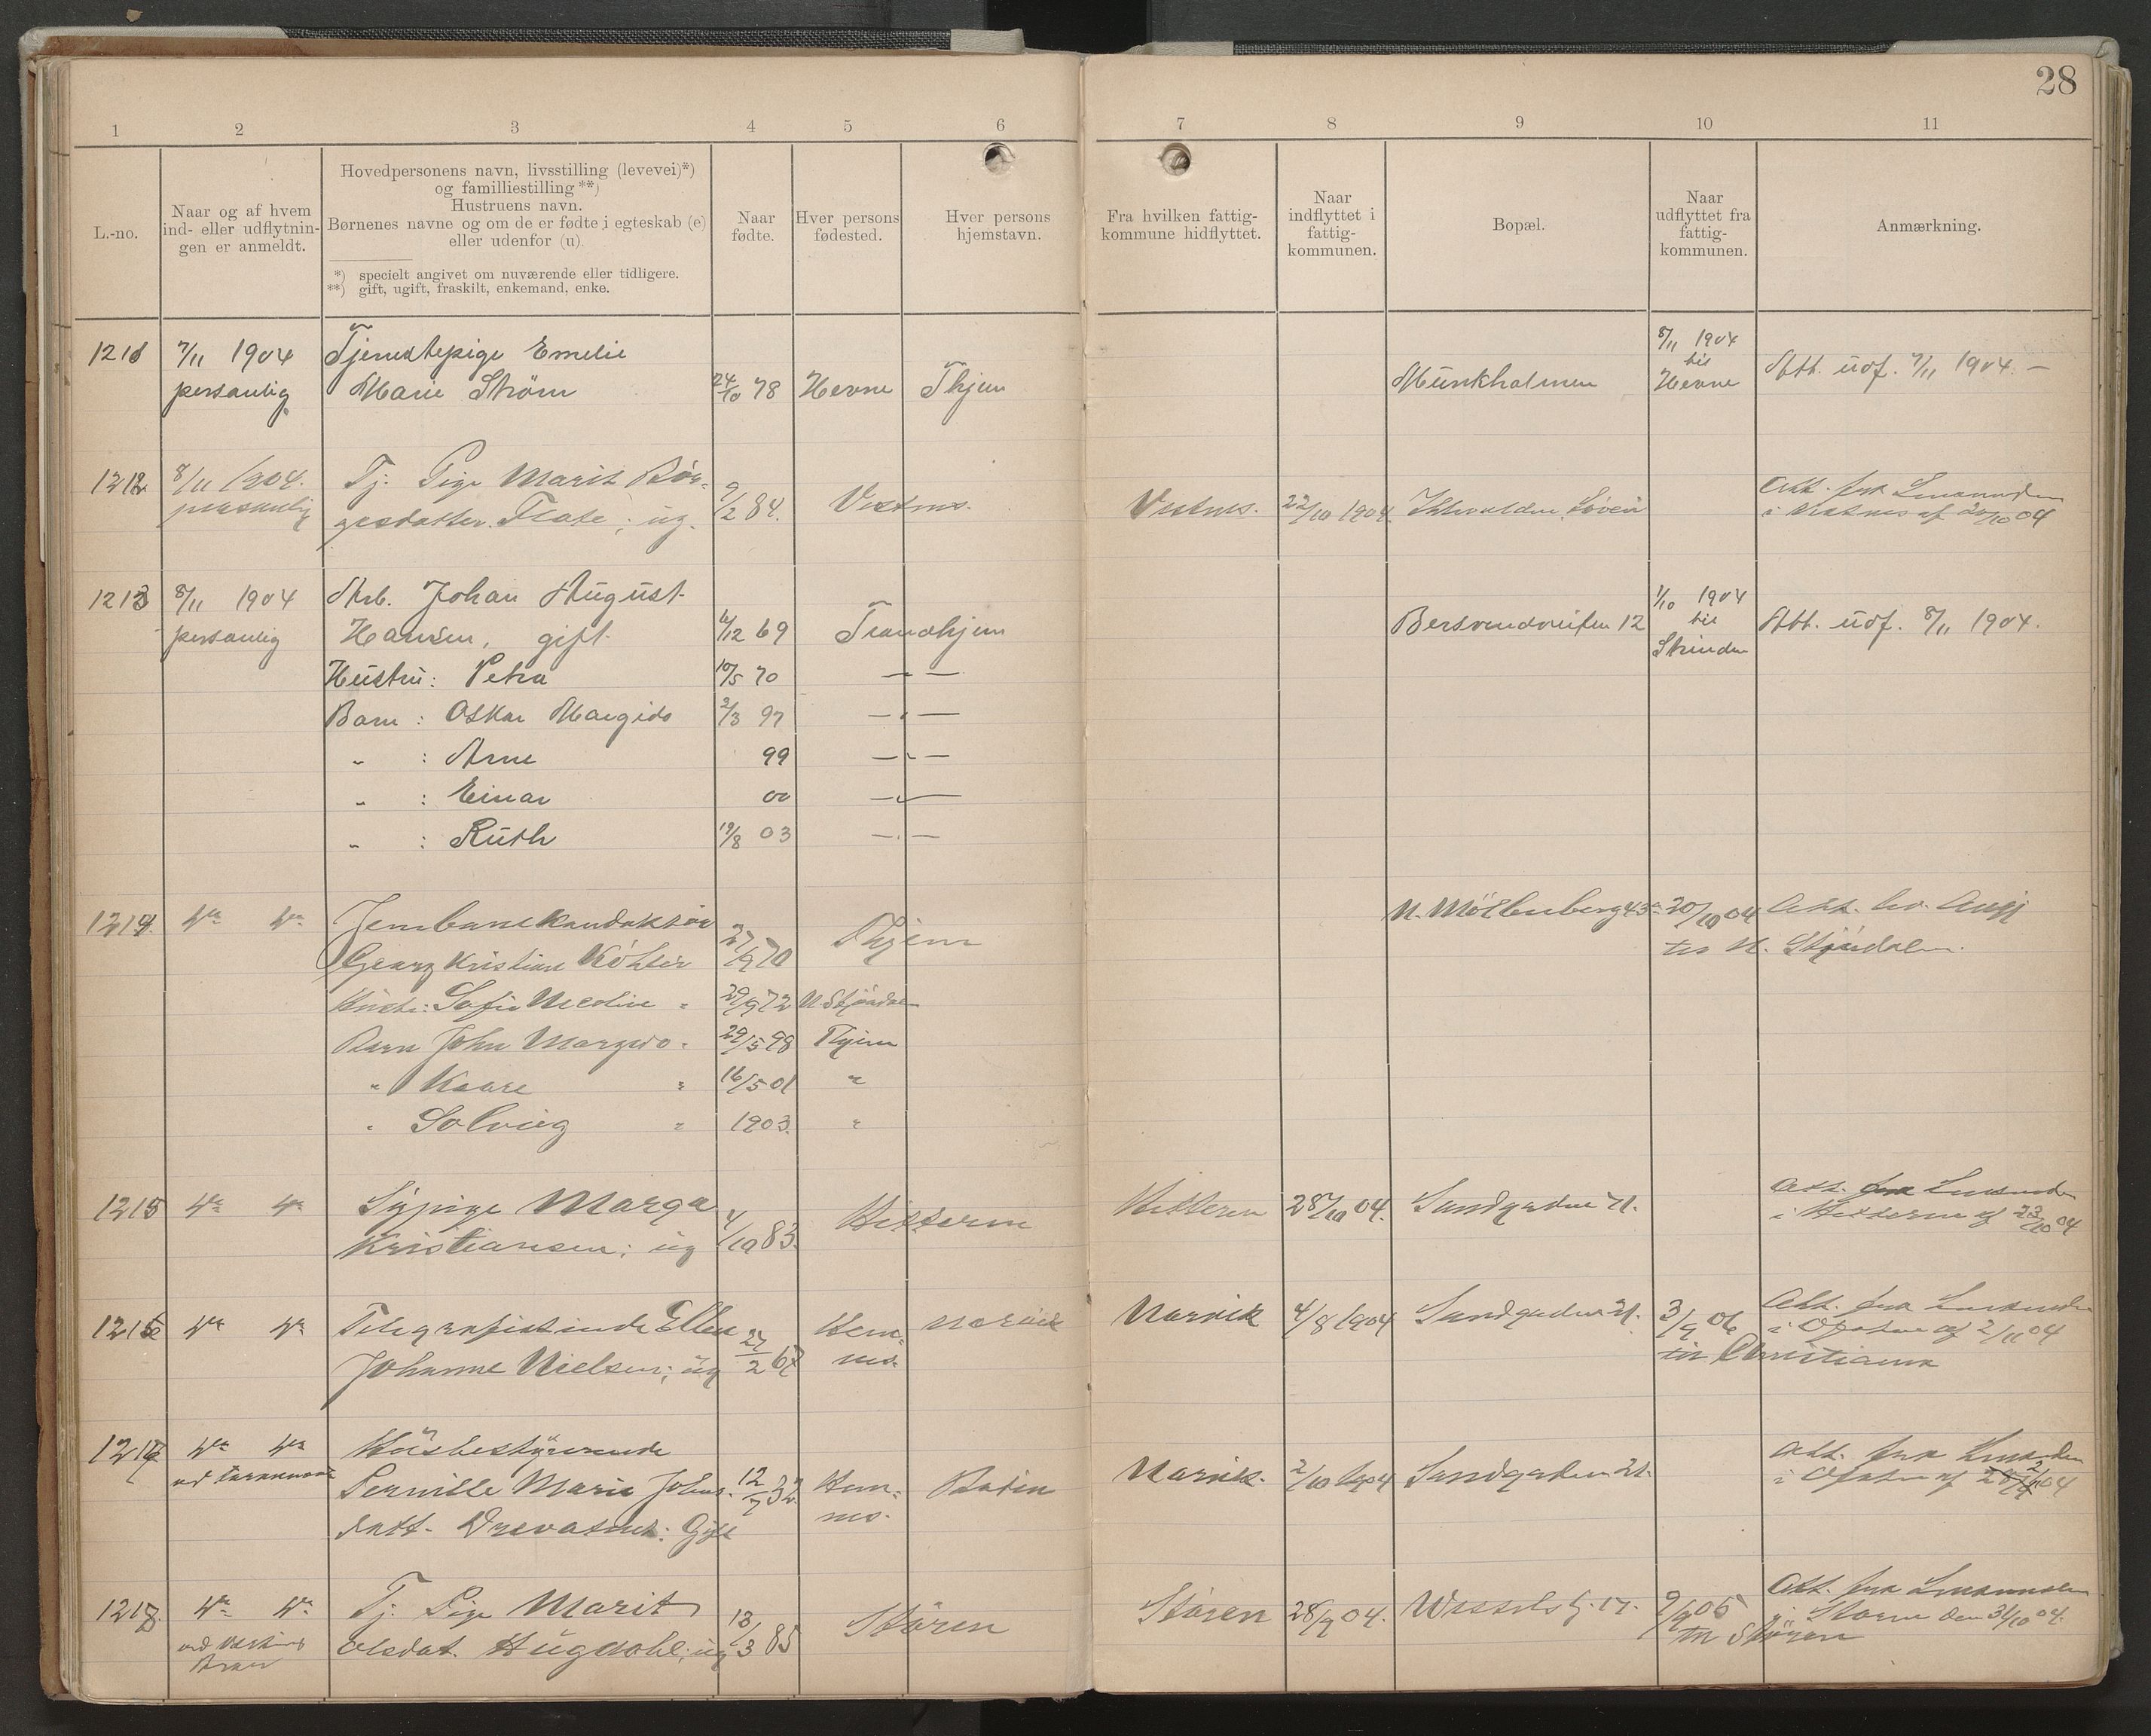 28
1 2 3 4 5 6 7 8 9 10 11
L.-no.
Naar og af hvem
ind- eller udflytnin-
gen er anmeldt.
Hovedpersonens navn, livsstilling (levevei)*)
og familliestilling **)
Hustruens navn.
Børnenes navne og om de er fødte i egteskab (e)
eller udenfor (u).
*) specielt angivet om nuværende eller tidligere.
**) gift, ugift, fraskilt, enkemand, enke.
Naar
fødte.
Hver persons
fødested.
Hver persons
hjemstavn.
Fra hvilken fattig-
kommune hidflyttet.
Naar
indflyttet i
fattig-
kommunen.
Bopæl.
Naar
udflyttet fra
fattig-
kommunen.
Anmærkning.
1211 7/11 1904 Tjenestepige Emelie 8/11 1904
personlig Marie Strøm 24/10 78 Hevne Thjem Munkholmen til Hevne Att. udf. 7/11 1904. —
1212 8/11 1904. Tj. Pige Marit Bør- Att. fra Lensmanden
personlig gesdatter Flate; ug. 9/2 84. Vestnes. Vestnes. 22/10 1904. i Vestnes af 20/10 04
1213 8/11 1904 Arb. Johan August 1/10 1904
personlig Hansen, gift 6/12 69 Trondhjem 12 til Strinden Att. udf. 8/11 1904.
Hustru: Petra 10/5 70 — " —
Barn: Oskar Margido 2/3 97 — " —
" : Arne 99 — " —
" : Einar 00 — " —
" : Ruth 19/8 03 — " —
1214 Jernbanekonduktør N. Möllenberg 43 20/10 04 Att.
Georg Kristian Köhler 27/9 70 Thjem til N. Stjördalen.
Hustr: Sofie Nicoline " 29/9 72 N. Stjördalen
Barn John Margido " 29/5 98 Thjem
" Kaare " 16/5 01 "
" Solveig " 1903. "
1215 Sypige Marga Hitteren 28/10 04. Sandgaden 21. Att. fra Lensmanden
Kristiansen; ug 4/10 83. Hitteren i Hitteren af 23/10 04
1216 Telegrafistinde Ellen Hem- Narvik Narvik 4/8 1904 Sandgaden 21. 3/9 06 Att. fra Lensmanden
Johanne Nielsen; ug 27/2 67 nes. til Christiania i Ofoten af 2/11 04
1217 Husbestyrerinde Att. fra Lensmanden
Pernille Marie Johns- 12/7 32. Hem- Bodin Narvik. 2/10 1904 Sandgaden 21. i Ofoten af
datt. nes. Gift
1218. Tj. Pige Marit Støren 28/9 04. Wessels g. 17. 9/9 05 Att. fra Lensmanden
Olsdat. Hugdahl; ug 13/3 85 Støren til Støren i Støren den 31/10 04.